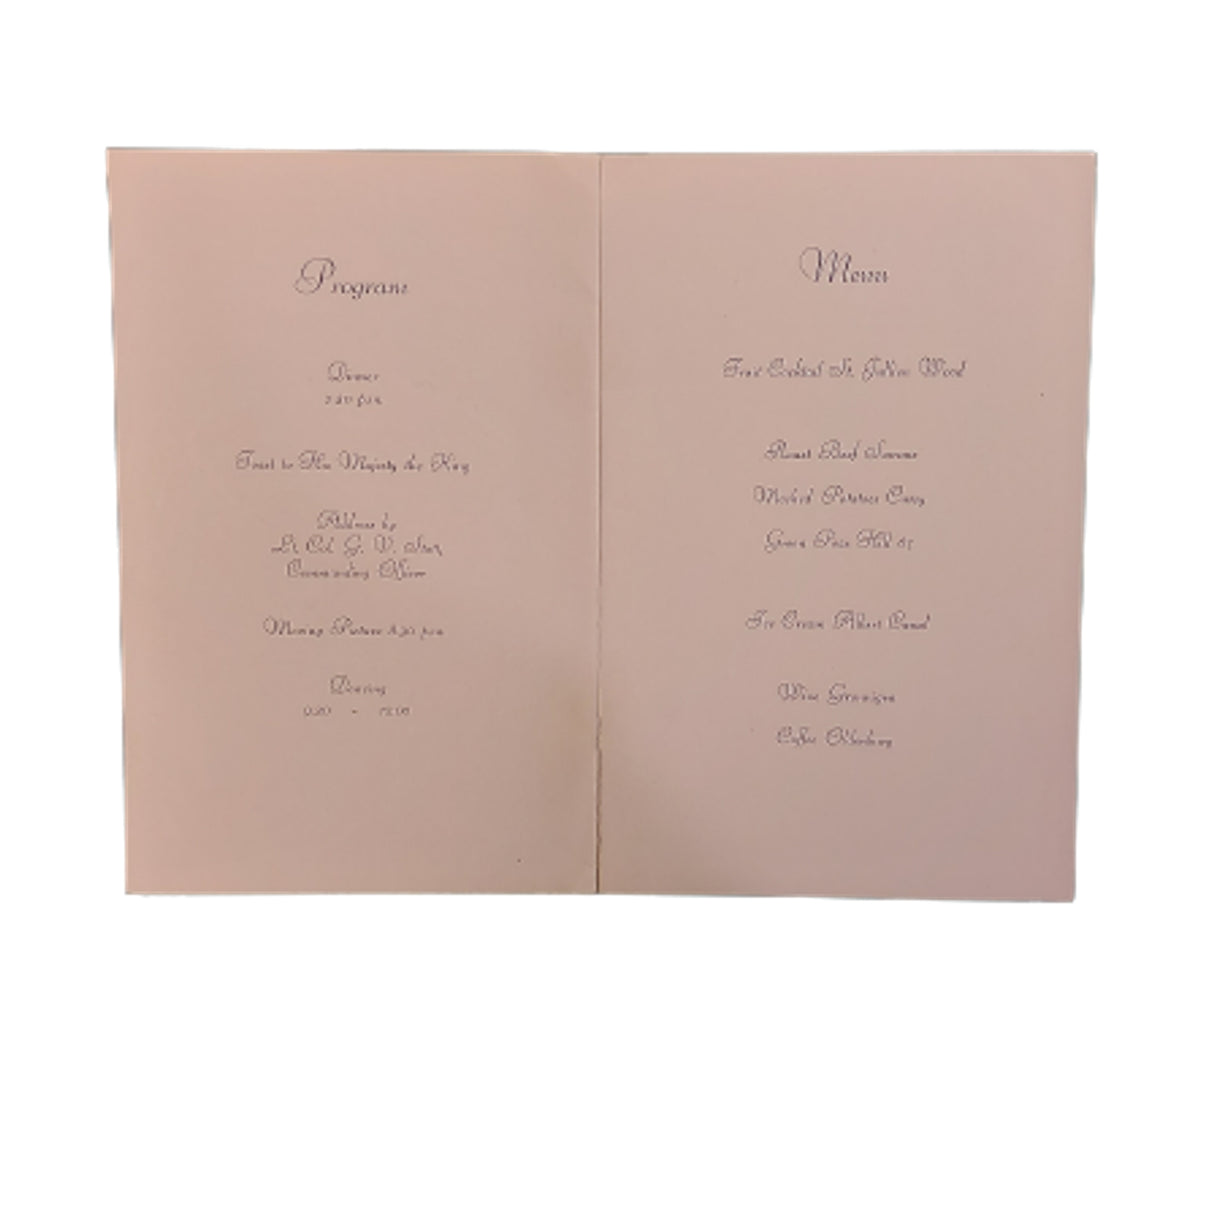 Program
Dinner
p.m.
Toast to His Majesty the King
Address by
Lt. Col. G. V.
Commanding Officer
Moving Picture 8.30 p.m.
Dancing
9.30 - 12.00
Menu
Fruit Cocktail St. Julien Wood
Roast Beef Somme
Mashed Potatoes Carpy
Green Peas Hill 67
Ice Cream Albert Canal
Wine Groningen
Coffee Oldenburg